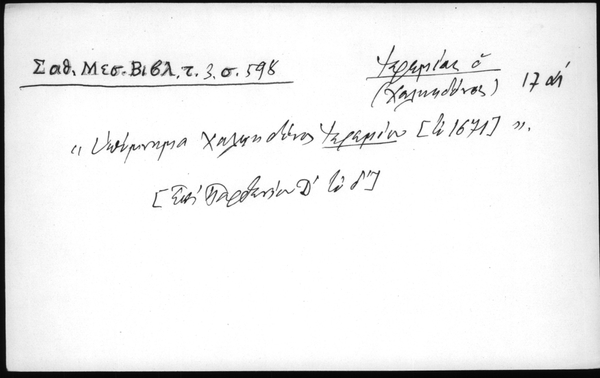 Σαθ. Μεσ. Βιβλ, τ. 3, σ. 598
Ἱερεμίας ὁ
(Χαλκηδόνος) 17 αἰ
« Ὑπόμνημα Χαλκηδόνος Ἱερεμίου [τῷ 1671] ».
[Ἐπὶ Παρθενίου Δ' τὸ δ']